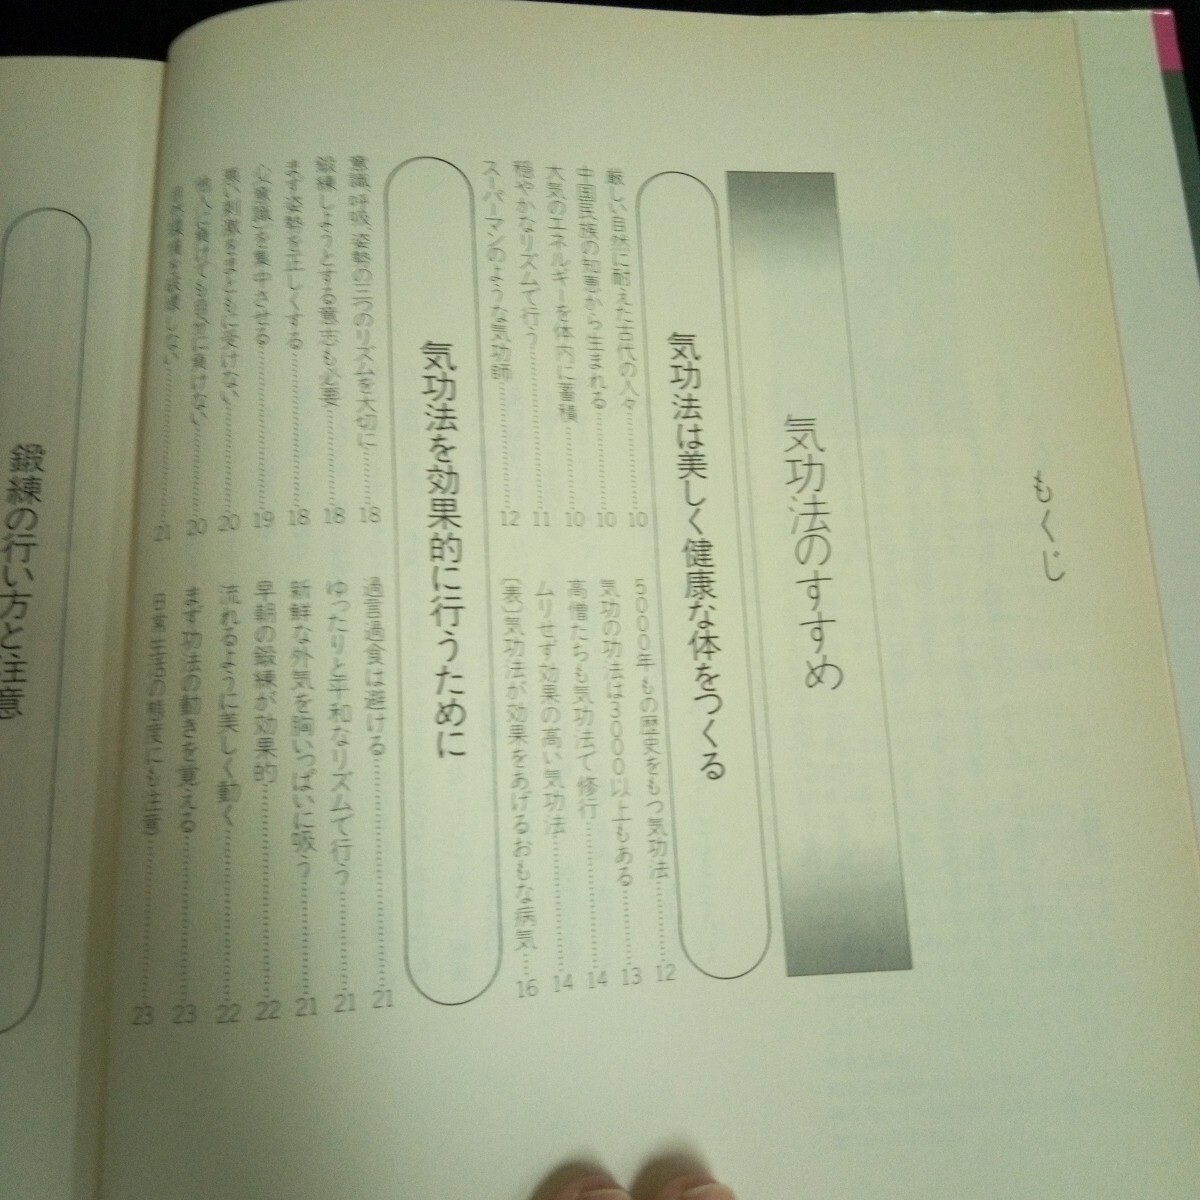 もくじ
気功法のすすめ
気功法は美しく健康な体をつくる
厳しい自然に耐えた古代の人々…………10
中国民族の知恵から生まれる…………10
大気のエネルギーを体内に蓄積…………10
穏やかなリズムで行う…………11
スーパーマンのような気功師…………12
5000年もの歴史をもつ気功法…………12
気功の功法は3000以上もある…………13
高僧たちも気功法で修行…………14
ムリせず効果の高い気功法…………14
〔表〕気功法が効果をあげるおもな病気…16
気功法を効果的に行うために
意識、呼吸、姿勢の三つのリズムを大切に…………18
鍛練しようとする意志も必要…………18
まず姿勢を正しくする…………18
心(意識)を集中させる…………19
悪い刺激をまともに受けない…………20
他人に負けても自分に負けない…………20
21
過言過食は避ける…………21
ゆったりと平和なリズムで行う…………21
新鮮な外気を胸いっぱいに吸う…………21
早朝の鍛練が効果的…………22
流れるように美しく動く…………22
まず功法の動きを覚える…………23
日常生活の態度にも注意…………23
鍛練の行い方と注意